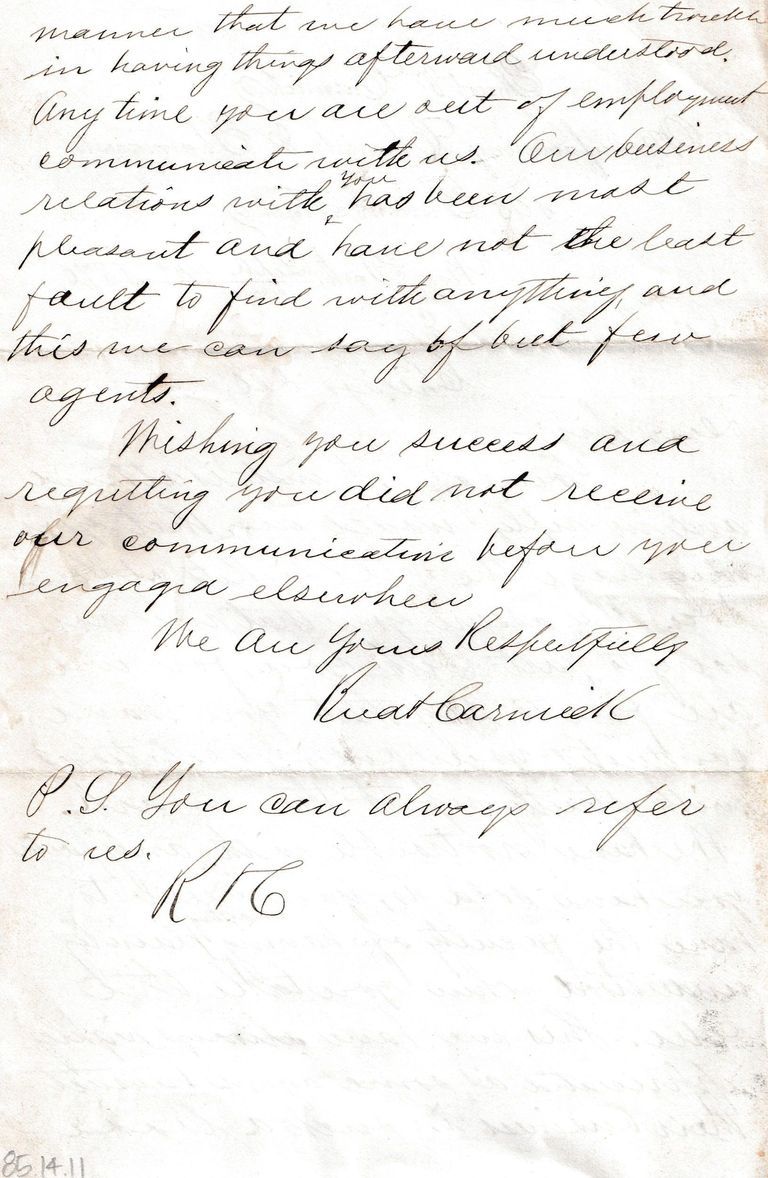 manner that we have much trouble
in having things afterward understood.
Any time you are out of employment
communicate with us. Our business
you
relations with has been most
pleasant and have not the least
fault to find with anything, and
this we can say of but few
agents.
Wishing you success and
regretting you did not receive
our communication before you
engaged elsewhere
We are Yours Respectfully
P.S. You can always refer
to us.
85.14.11